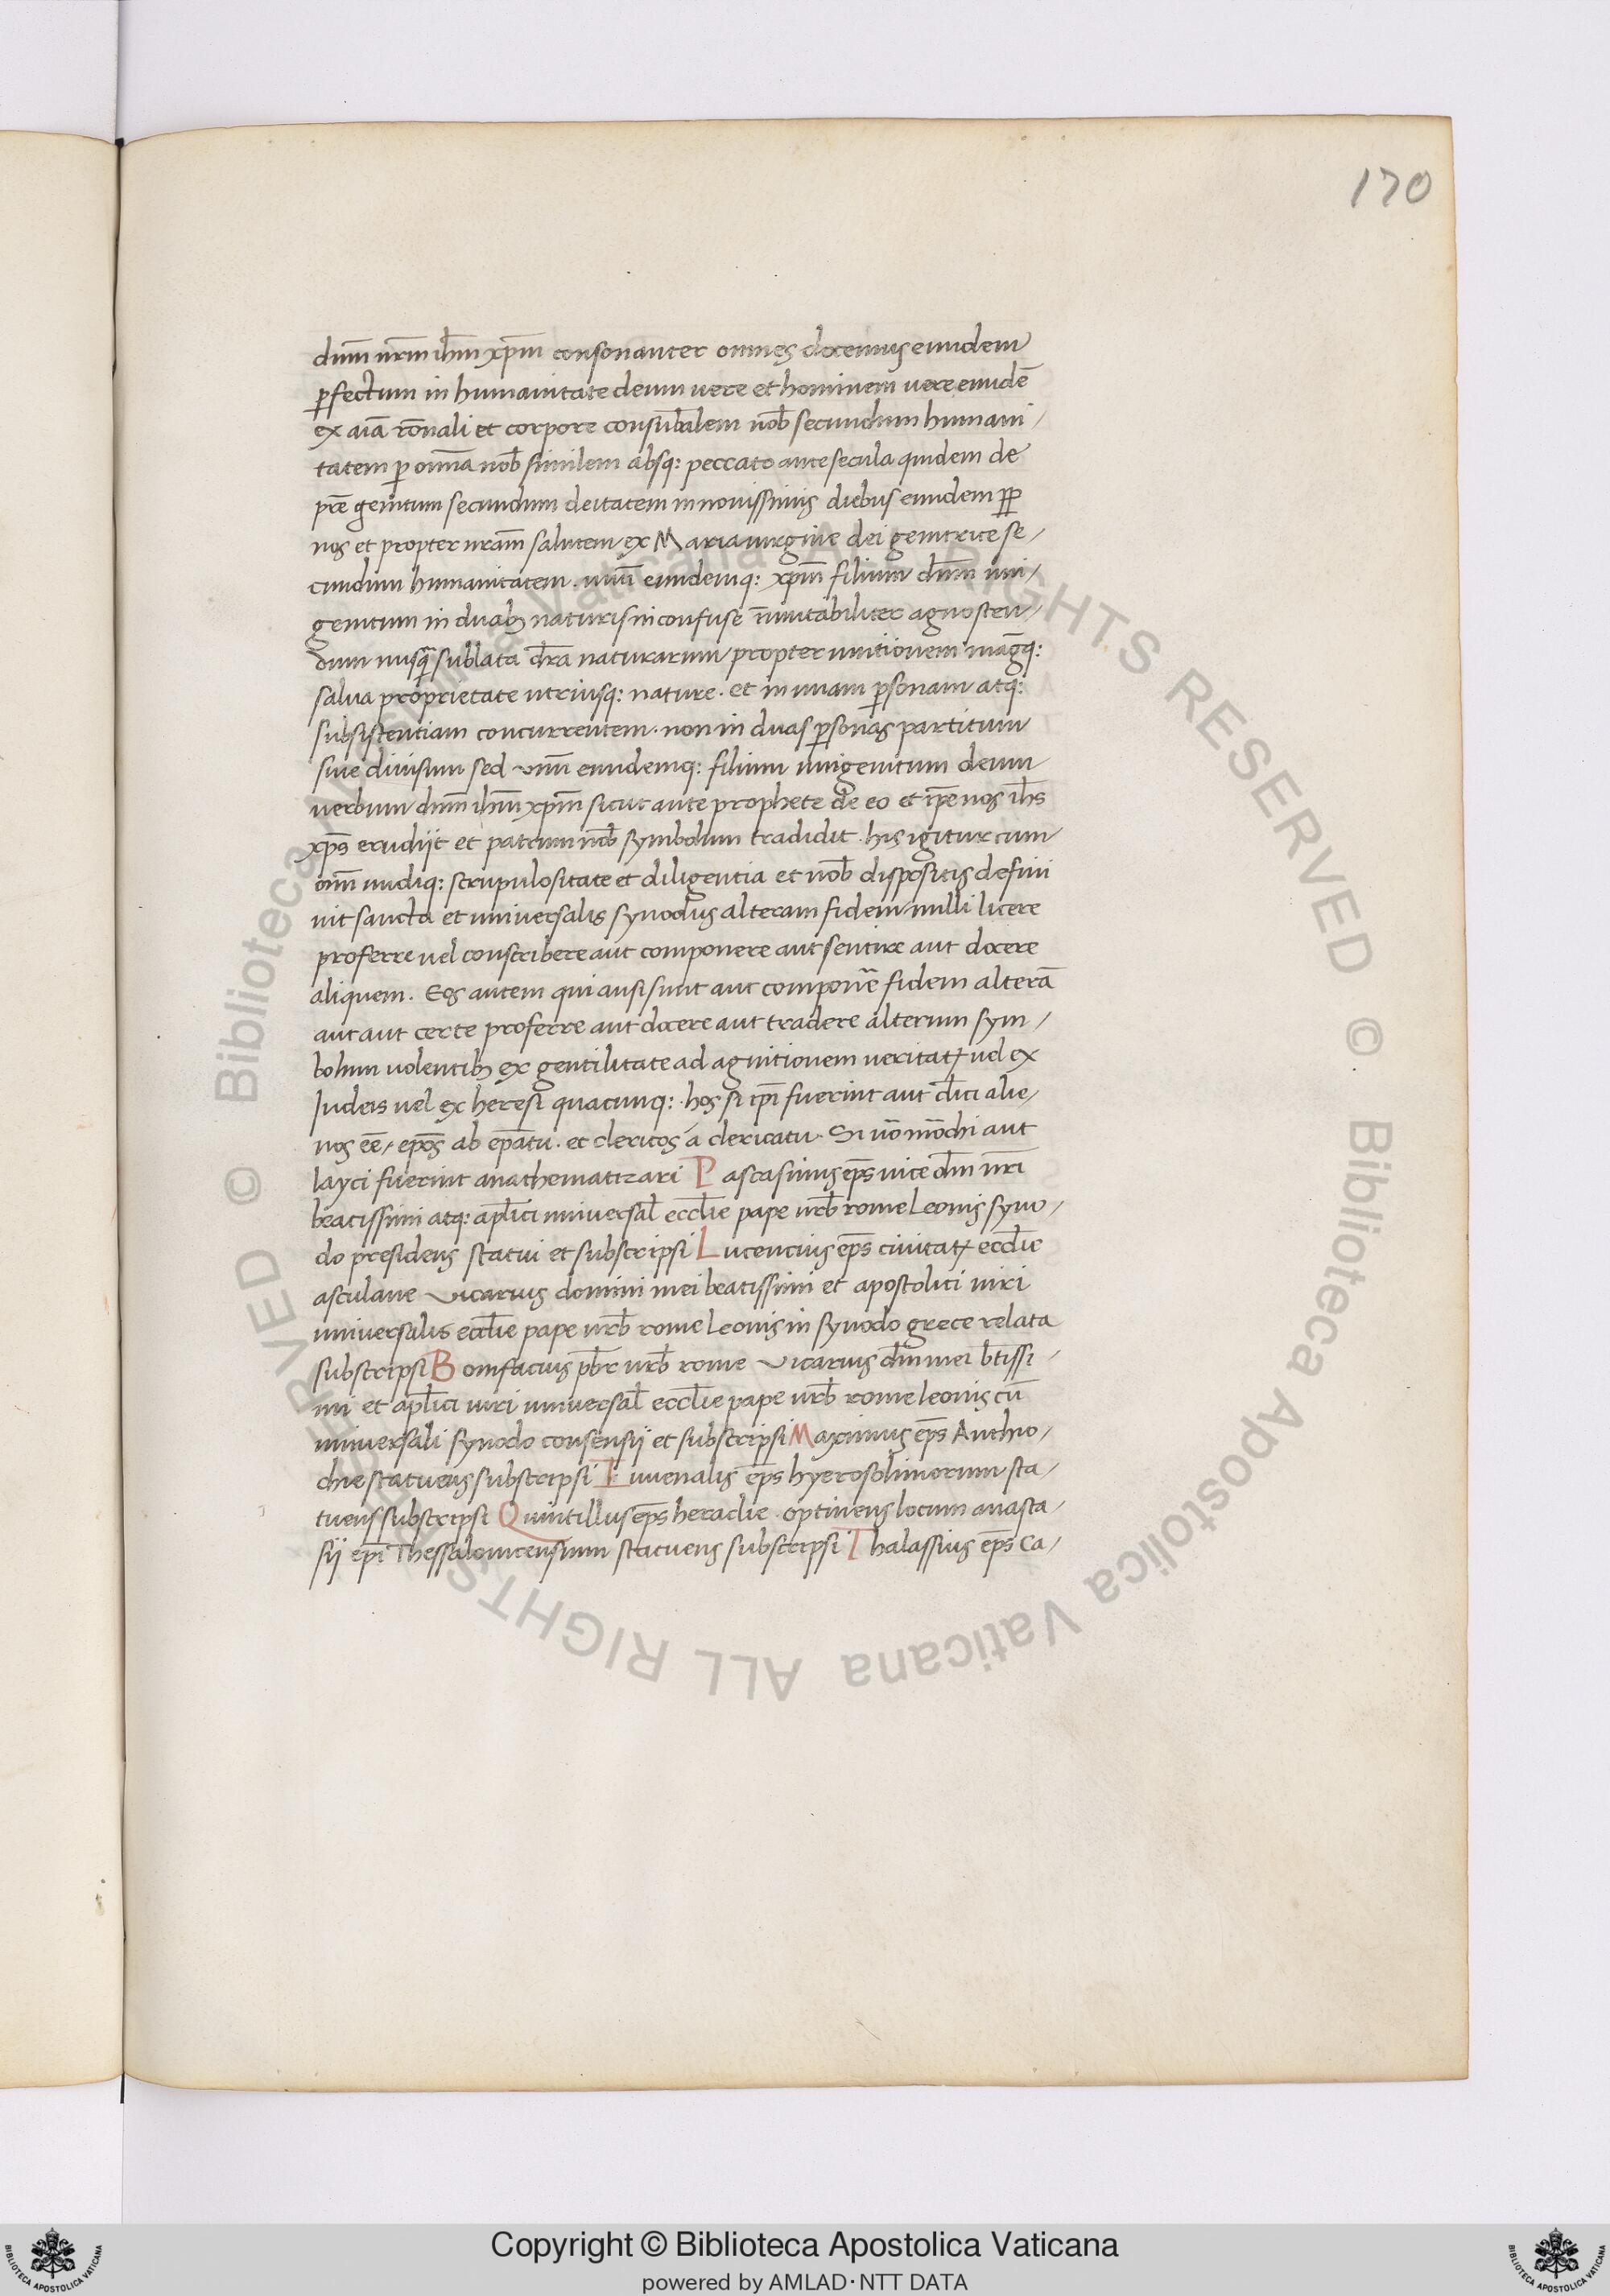 170
dnm̄ nrm̄ ihm̄ xp̄m consonanter omnes docemus eundem
ꝑfectum in humanitate deum uere et hominem uere eundē
ex aīa rōnali et corpore consubālem nob̄ secundum humani/
tatem ꝑ omīa nob̄ similem absq: peccato ante secula quidem de
prē genitum secundum deitatem in nouissimis diebus eundem ꝓꝑ
nos et propter nrām salutem ex Maria uirgine dei genitrice se/
cundum humanitatem. unū eundemq: xp̄m filium dnm̄ uni/
genitum in duabꝫ naturis inconfuse īmutabiliter agnoscen/
dum nusq̄ sublata dr̄a naturarum propter unitionem magq̄:
salua proprietate utriusq: nature. et in unam ꝑsonam atq:
subsistentiam concurrentem. non in duas ꝑsonas partitum
siue diuisum sed unū eundemq: filium unigenitum deum
uerbum dnm̄ ihm̄ xp̄m sicut ante prophete de eo et ip̄e nos ih̄s
xp̄s erudijt et patrum nob̄ symbolum tradidit. his igitur cum
om̄i undiq: scrupulositate et diligentia et nob̄ dispositis defini
uit sancta et uniuersalis synodus alteram fidem nulli licere
proferre uel conscribere aut componere aut sentire aut docere
aliquem. Eos autem qui ausi sunt aut componē fidem alterā
aut aut certe proferre aut docere aut tradere alterum sym/
bolum uolentibꝫ ex gentilitate ad agnitionem ueritatꝭ uel ex
Iudeis uel ex heresi quacunq: hos si ep̄i fuerint aut cl̄ici alie/
nos eē, ep̄os ab ep̄atu. et clericos a clericatu. Si uō mōchi aut
layci fuerint anathematizari Pascasinus ep̄s uice dn̄i nr̄i
beatissimi atq: apl̄ici uniuersal̄ eccl̄ie pape urb̄ rome Leonis syno/
do presidens statui et subscripsi Lucencius ep̄s ciuitatꝭ eccl̄ie
asculane uicarius domini mei beatissimi et apostolici uiri
uniuersalis eccl̄ie pape urb̄ rome Leonis in synodo grece relata
subscripsi Bonifacius pb̄r urb̄ rome uicarius dn̄i mei b̄tissi/
mi et apl̄ici uiri uniuersal̄ eccl̄ie pape urb̄ rome leonis cū
uniuersali synodo consensij et subscripsi Maximus ep̄s Anthio/
chie statuens subscripsi Iuuenalis ep̄s hyerosolimorum sta/
tuens subscripsi Quintillus ep̄s heraclie. optinens locum anasta/
sij ep̄i Thessalonicensium statuens subscripsi Thalassius ep̄s Ca/
© Biblioteca Apostolica Vaticana ALL RIGHTS RESERVED
© Biblioteca Apostolica Vaticana ALL RIGHTS RESERVED
Copyright © Biblioteca Apostolica Vaticana
powered by AMLAD·NTT DATA
BIBLIOTECA APOSTOLICA VATICANA
BIBLIOTECA APOSTOLICA VATICANA